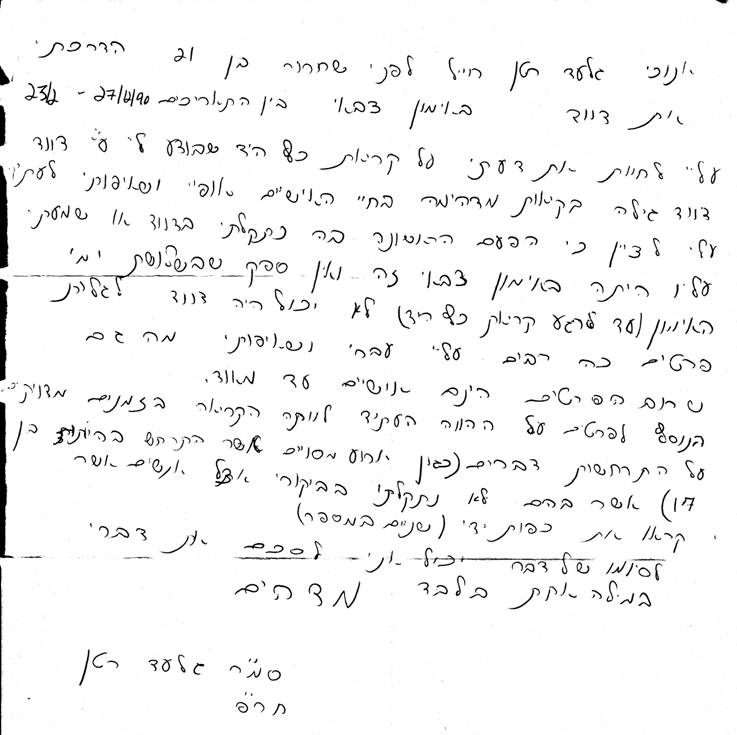 אנוכי גלעד רטן חייל לפני שחרור בן 21 הדרכתי
את דוד באימון צבאי בין התאריכים 27/4/90 - 23/2
עליי לחוות את דעתי על קריאת כף היד שבוצע לי ע"י דוד
דוד גילה בקיאות מדהימה בחיי האישיים אופיי ושאיפותי לעתיד
עלי לציין כי הפעם הראשונה בה נתקלתי בדוד או שמעתי
עליו היתה באימון צבאי זה ואין ספק שבשלושת ימי
האימון (עד לרגע קריאת כף היד) לא יכול היה דוד לגלות
פרטים כה רבים עליי עברי ושאיפותי מה גם
שרוב הפרטים הינם אישיים עד מאוד.
בנוסף לפרטים על ההווה העתיד לוותה הקריאה בזמנים מדויקים
על התרחשות דברים (כגון ארוע מסויים אשר התרחש בהיותי בן
17) אשר בהם לא נתקלתי בביקורי אצל אנשים אשר
קראו את כפות ידי (שניים במספר)
לסיומו של דבר יכול אני לסכם את דברי
במילה אחת בלבד מדהים
סמ"ר גלעד רטן